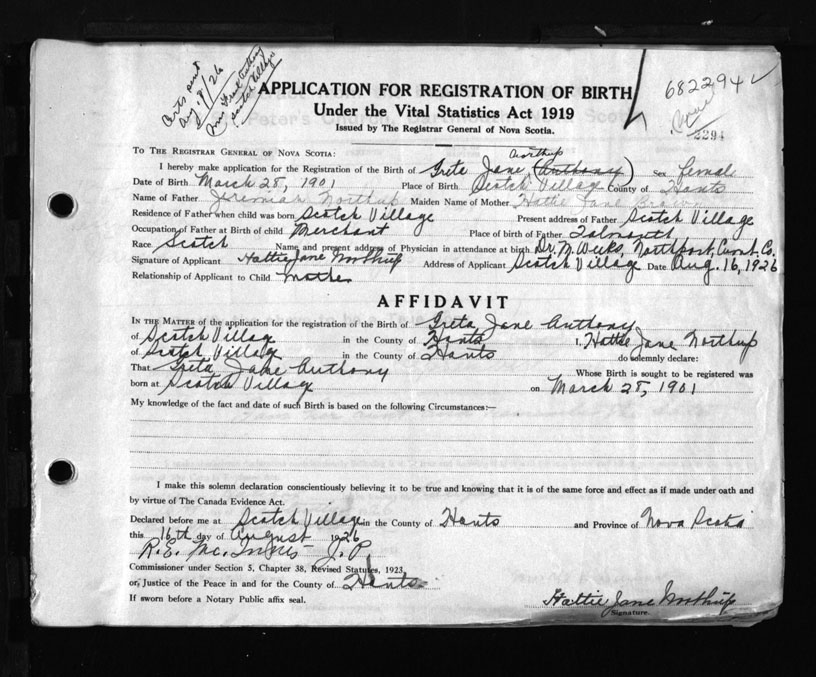 Certs sent
Aug. 9/26
Mrs Fred Anthony
Scotch Village
682294
2294
APPLICATION FOR REGISTRATION OF BIRTH
Under the Vital Statistics Act 1919
Issued by The Registrar General of Nova Scotia.
Northup
TO THE REGISTRAR GENERAL OF NOVA SCOTIA:
I hereby make application for the Registration of the Birth of Greta Jane (Anthony) Sex female
Date of Birth March 28, 1901 Place of Birth Scotch Village County of Hants
Name of Father Jeremiah Northup Maiden Name of Mother Hattie Jane Brown
Residence of Father when child was born Scotch Village Present address of Father Scotch Village
Occupation of Father at Birth of child Merchant Place of birth of Father Falmouth
Race Scotch Name and present address of Physician in attendance at birth Dr. M. Weeks, Northport, Cumb. Co.
Signature of Applicant Hattie Jane Northup Address of Applicant Scotch Village Date Aug. 16, 1926
Relationship of Applicant to Child Mother
AFFIDAVIT
IN THE MATTER of the application for the registration of the Birth of Greta Jane Anthony
of Scotch Village in the County of Hants I, Hattie Jane Northup
of Scotch Village in the County of Hants do solemnly declare:
That Greta Jane Anthony Whose Birth is sought to be registered was
born at Scotch Village on March 28, 1901
My knowledge of the fact and date of such Birth is based on the following Circumstances:—
I make this solemn declaration conscientiously believing it to be true and knowing that it is of the same force and effect as if made under oath and
by virtue of The Canada Evidence Act.
Declared before me at Scotch Village in the County of Hants and Province of Nova Scotia
this 16th day of August 1926
R. E. Mc. Innes J. P.
Commissioner under Section 5, Chapter 38, Revised Statutes, 1923,
or, Justice of the Peace in and for the County of Hants
If sworn before a Notary Public affix seal.
Hattie Jane Northup
Signature.